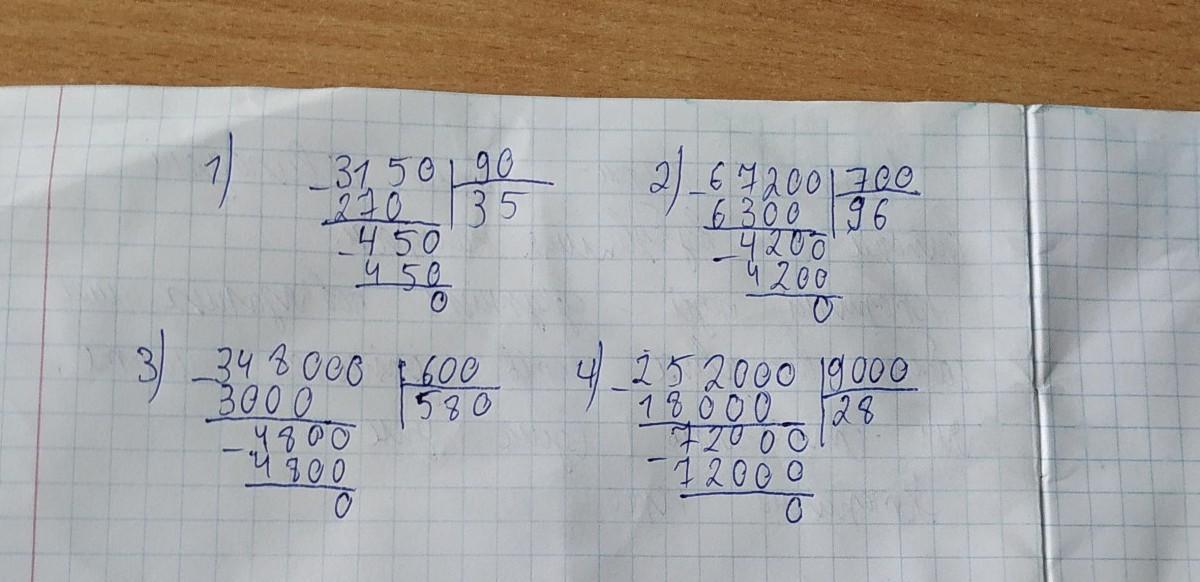 1) -3150 | 90
270 | 35
-450
450
0
2) -67200 | 700
6300 | 96
-4200
4200
0
3) -348000 | 600
3000 | 580
-4800
4800
0
4) -252000 | 9000
18000 | 28
-72000
72000
0